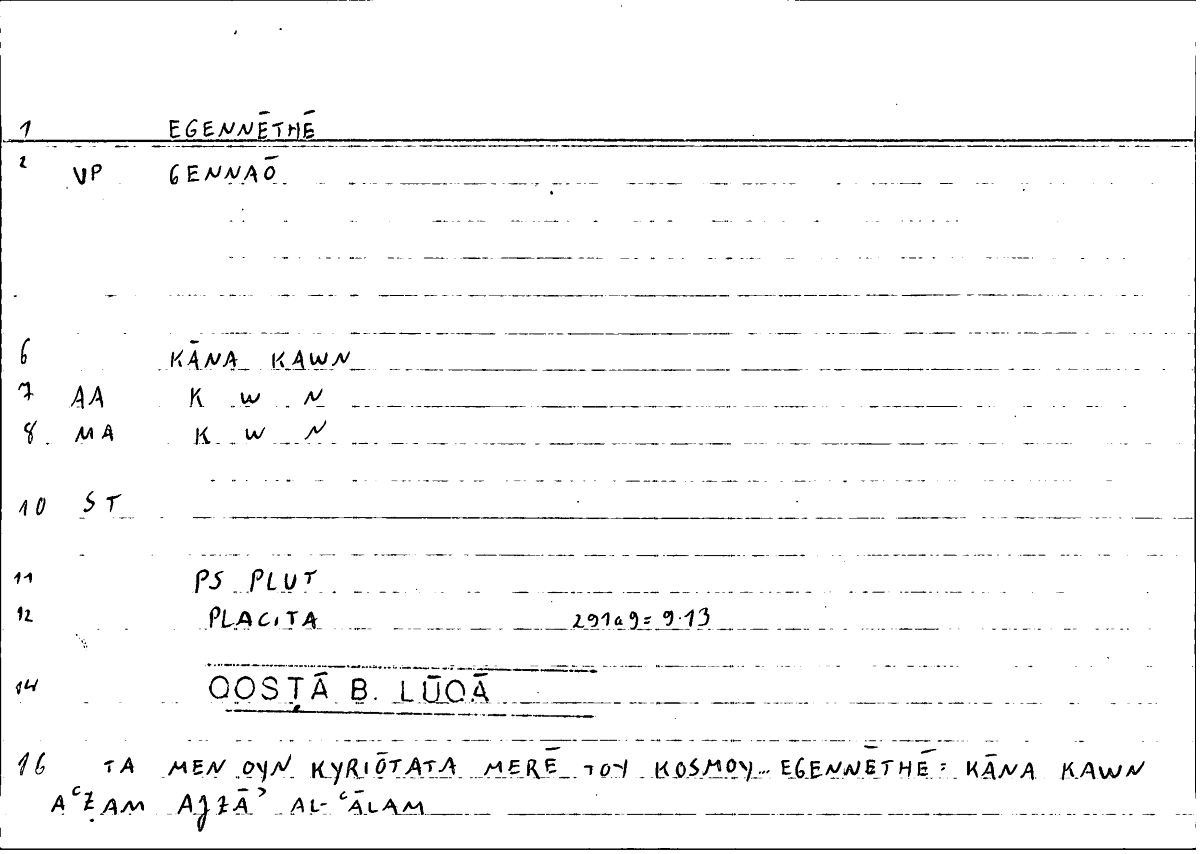 1 EGENNĒTHĒ
2 VP GENNAŌ
6 KĀNA KAWN
7 AA K W N
8 MA K W N
10 ST
11 PS PLUT
12 PLACITA 291a9= 9.13
14 QOSṬĀ B. LŪQĀ
16 TA MEN OYN KYRIŌTATA MERĒ TOY KOSMOY... EGENNĒTHĒ: KĀNA KAWN
AʿẒAM AJZĀʾ AL-ʿĀLAM